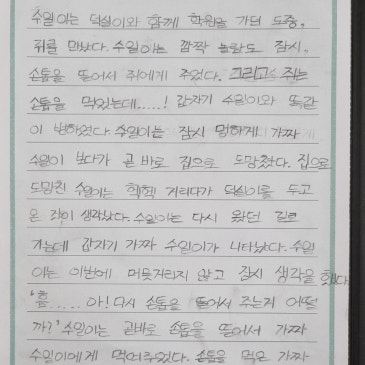 수일이는 덕실이와 함께 학원을 가던 도중,
쥐를 만났다. 수일이는 깜짝 놀랐도 잠시,
손톱을 뜯어서 쥐에게 주었다. 그리고 쥐는
손톱을 먹었는데.....! 갑자기 수일이와 똑같
이 변하였다. 수일이는 잠시 멍하게 가짜
수일이 보다가 곧 바로 집으로 도망쳤다. 집으로
도망친 수일이는 헥헥 거리다가 덕실이를 두고
온 것이 생각났다. 수일이는 다시 왔던 길로
가는데 갑자기 가짜 수일이가 나타났다. 수일
이는 이번에 머뭇거리지 않고 잠시 생각을 했다
'흠..... 아! 다시 손톱을 뜯어서 주는게 어떨
까?' 수일이는 곧바로 손톱을 뜯어서 가짜
수일이에게 먹여주었다. 손톱을 먹은 가짜